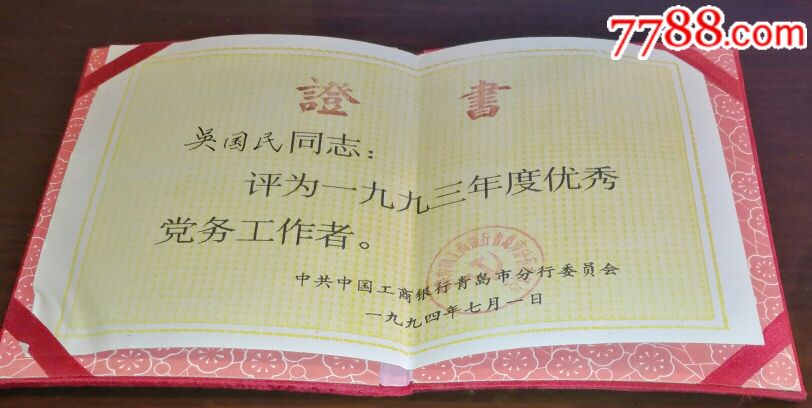 7788.com
證 書
吳国民同志：
评为一九九三年度优秀
党务工作者。
中共中国工商银行青岛市分行委员会
一九九四年七月一日